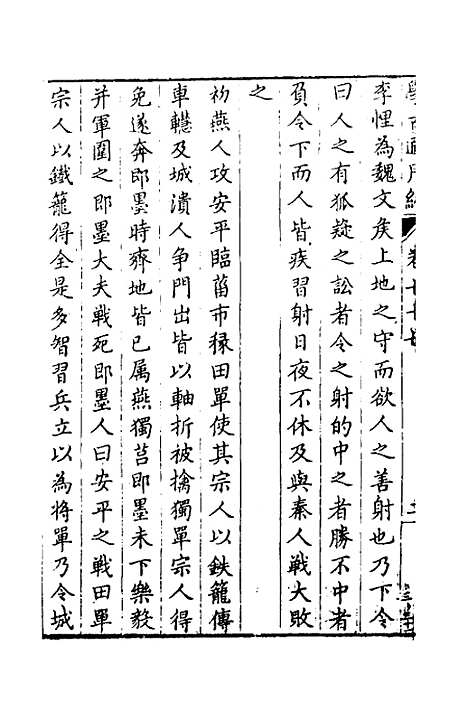 李悝為魏文矦上地之守而欲人之善射也乃下令
曰人之有狐疑之訟者令之射的中之者勝不中者
負令下而人皆疾習射日夜不休及與秦人戰大敗
之
初燕人攻安平臨菑市椽田單使其宗人以鉄籠傳
車轊及城潰人争門出皆以軸折被擒獨單宗人得
免遂奔即墨時齊地皆已属燕獨莒即墨未下樂毅
并軍圍之即墨大夫戰死即墨人曰安平之戰田單
宗人以鐵籠得全是多智習兵立以為將單乃令城